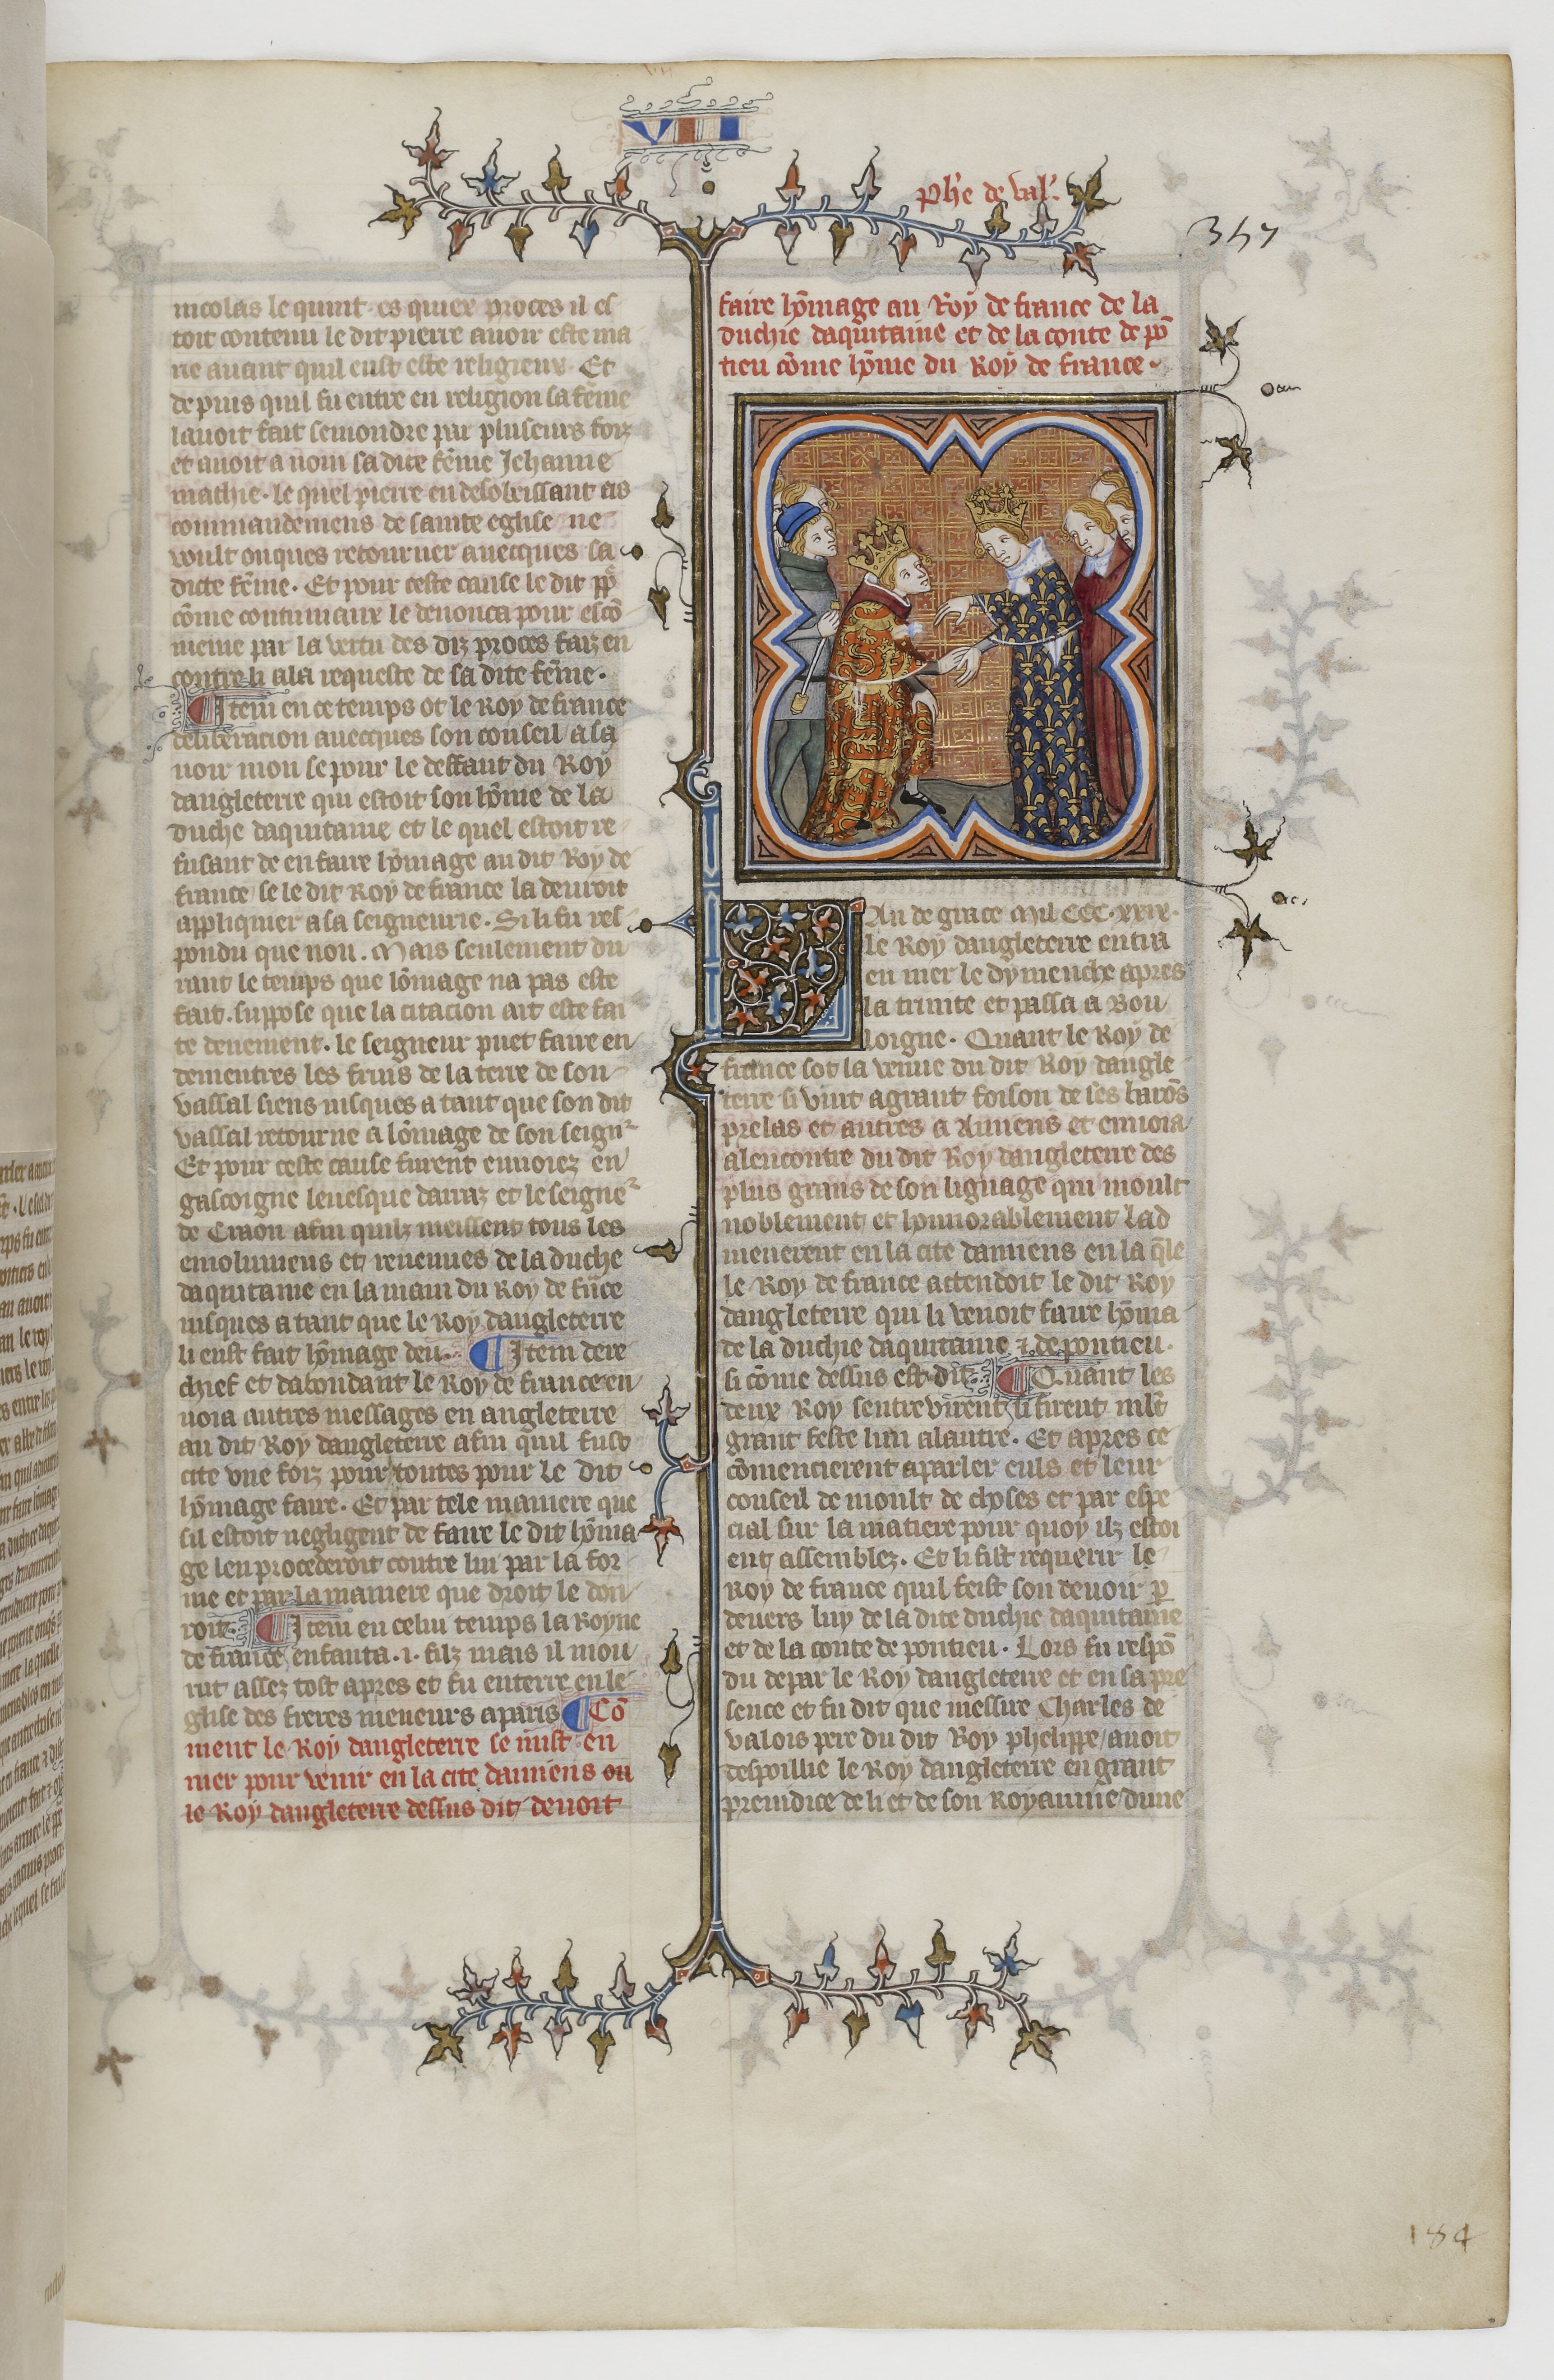 VII
phe de val'.
347
nicolas le quint es quiex proces il es
toit contenu le dit pierre auoir este ma
rie auant quil eust este religieux. Et
depuis quil fu entre en religion sa fēme
lauoit fait semondre par pluseurs foiz
et auoit a nom sa dite fēme Jehanne
mathie. le quel pierre en desobeissant aus
commandemens de sainte eglise ne
voult onques retourner auecques sa
dicte fēme. Et pour ceste cause le dit pp̄
cōme contumaux le denonca pour escō
menie par la vertu des diz proces faiz en
contre li a la requeste de sa dite fēme.
¶ Item en ce temps ot le Roy de france
deliberacion auecques son conseil a sa
uoir mon se pour le deffaut du Roy
dangleterre qui estoit son hōme de la
duche daquitaine et le quel estoit re
fusant de en faire hōmage au dit Roy de
france se le dit Roy de france la deuroit
appliquier a sa seigneurie. Si li fu res
pondu que non. Mais seulement du
rant le temps que lōmage na pas este
fait. suppose que la citacion ait este fai
te deuement. le seigneur puet faire en
dementres les fruis de la terre de son
vassal siens iusques a tant que son dit
vassal retourne a lōmage de son seignr
Et pour ceste cause furent enuoiez en
gascoigne leuesque darraz et le seigner
de Craon afin quilz meissent tous les
emolumens et reuenues de la duche
daquitaine en la main du Roy de frāce
iusques a tant que le Roy dangleterre
li eust fait hōmage deu. ¶ Item dere
chief et dabondant le Roy de france en
uoia autres messages en angleterre
au dit Roy dangleterre afin quil fust
cite vne foiz pour toutes pour le dit
hōmage faire. Et par tele maniere que
sil estoit negligent de faire le dit hōma
ge len procederoit contre lui par la for
me et par la maniere que droit le don
roit. ¶ Item en celui temps la Royne
de france enfanta .i. filz mais il mou
rut assez tost apres et fu enterre en le
glise des freres meneurs a paris ¶ Cō
ment le Roy dangleterre se mist en
mer pour venir en la cite damiens ou
le Roy dangleterre dessus dit deuoit
faire hōmage au Roy de france de la
duchie daquitaine et de la conte de pō
tieu cōme hōme du Roy de france.
LAn de grace Mil CCC. XXIX.
le Roy dangleterre entra
en mer le dymenche apres
la trinite et passa a Bou
loigne. Quant le Roy de
france sot la venue du dit Roy dangle
terre si vint a grant foison de ses barōs
prelas et autres a Amiens et enuoia
a lencontre du dit Roy dangleterre des
plus grans de son lignage qui moult
noblement et honnorablement lad
menerent en la cite damiens en la q̄le
le Roy de france attendoit le dit Roy
dangleterre qui li venoit faire hōma
de la duchie daquitaine ⁊ de pontieu.
si cōme dessus est dit. ¶ Quant les
deux Roy sentreuirent si firent mlt̄
grant feste lun a lautre. Et apres ce
cōmencierent a parler euls et leur
conseil de moult de choses et par espe
cial sur la matiere pour quoy ilz estoi
ent assemblez. Et li fist requerir le
Roy de france quil feist son deuoir p
deuers luy de la dite duchie daquitaine
et de la conte de pontieu. Lors fu respō
du de par le Roy dangleterre et en sa pre
sence et fu dit que messire Charles de
valois pere du dit Roy phelippe/ auoit
despoillie le Roy dangleterre en grant
preiudice de li et de son Royaume dune
184